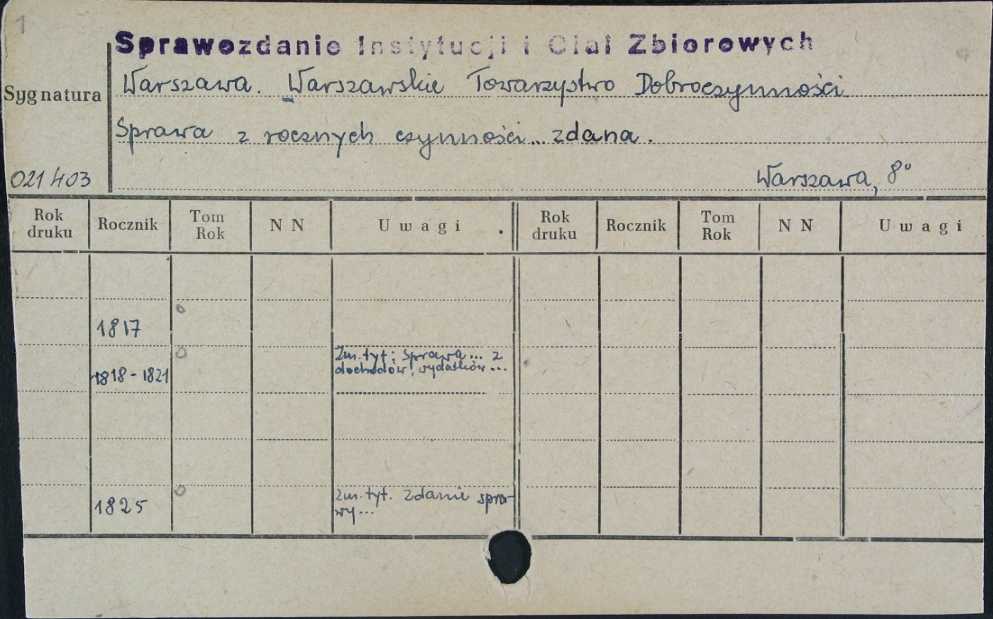 1
Sprawozdanie Instytucji i Ciał Zbiorowych
Sygnatura
Warszawa. Warszawskie Towarzystwo Dobroczynności
Sprawa z rocznych czynności... zdana.
021403
Warszawa, 8°
Rok druku Rocznik Tom Rok N N Uwagi Rok druku Rocznik Tom Rok N N Uwagi
1817
1818-1821 Zm. tyt: Sprawa... z
dochodów, wydatków...
1825 Zm. tyt. Zdanie spra-
wy...